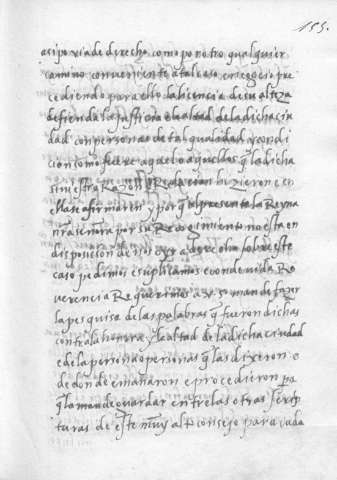 155.
asi por via de derecho como por otro qualquier
camino conveniente a tal caso e negocio pre
cediendo para ello la licencia de su alteza
defienda la justicia e lealtad de la dicha ciu
dad con personas de tal qualidad y condi
cion como fuere aquel o aquellos q la dicha
siniestra Razon Relacion hizieron e en
ella se afirmaren y porq al presente la Reyna
nra señora por su Recogimiento no esta en
disposicion de nos oyr a derecho sobre este
caso pedimos e suplicamos e con devida Re
verencia Requerimos a v. s. mande fazer
la pesquisa de las palabras q fueron dichas
contra la honrra y lealtad de la dicha ciudad
e de la persona o personas q las dixeron e
de donde emanaron e procedieron pa
q la mande guardar entre las otras scrip
turas de este muy alto consejo para cada